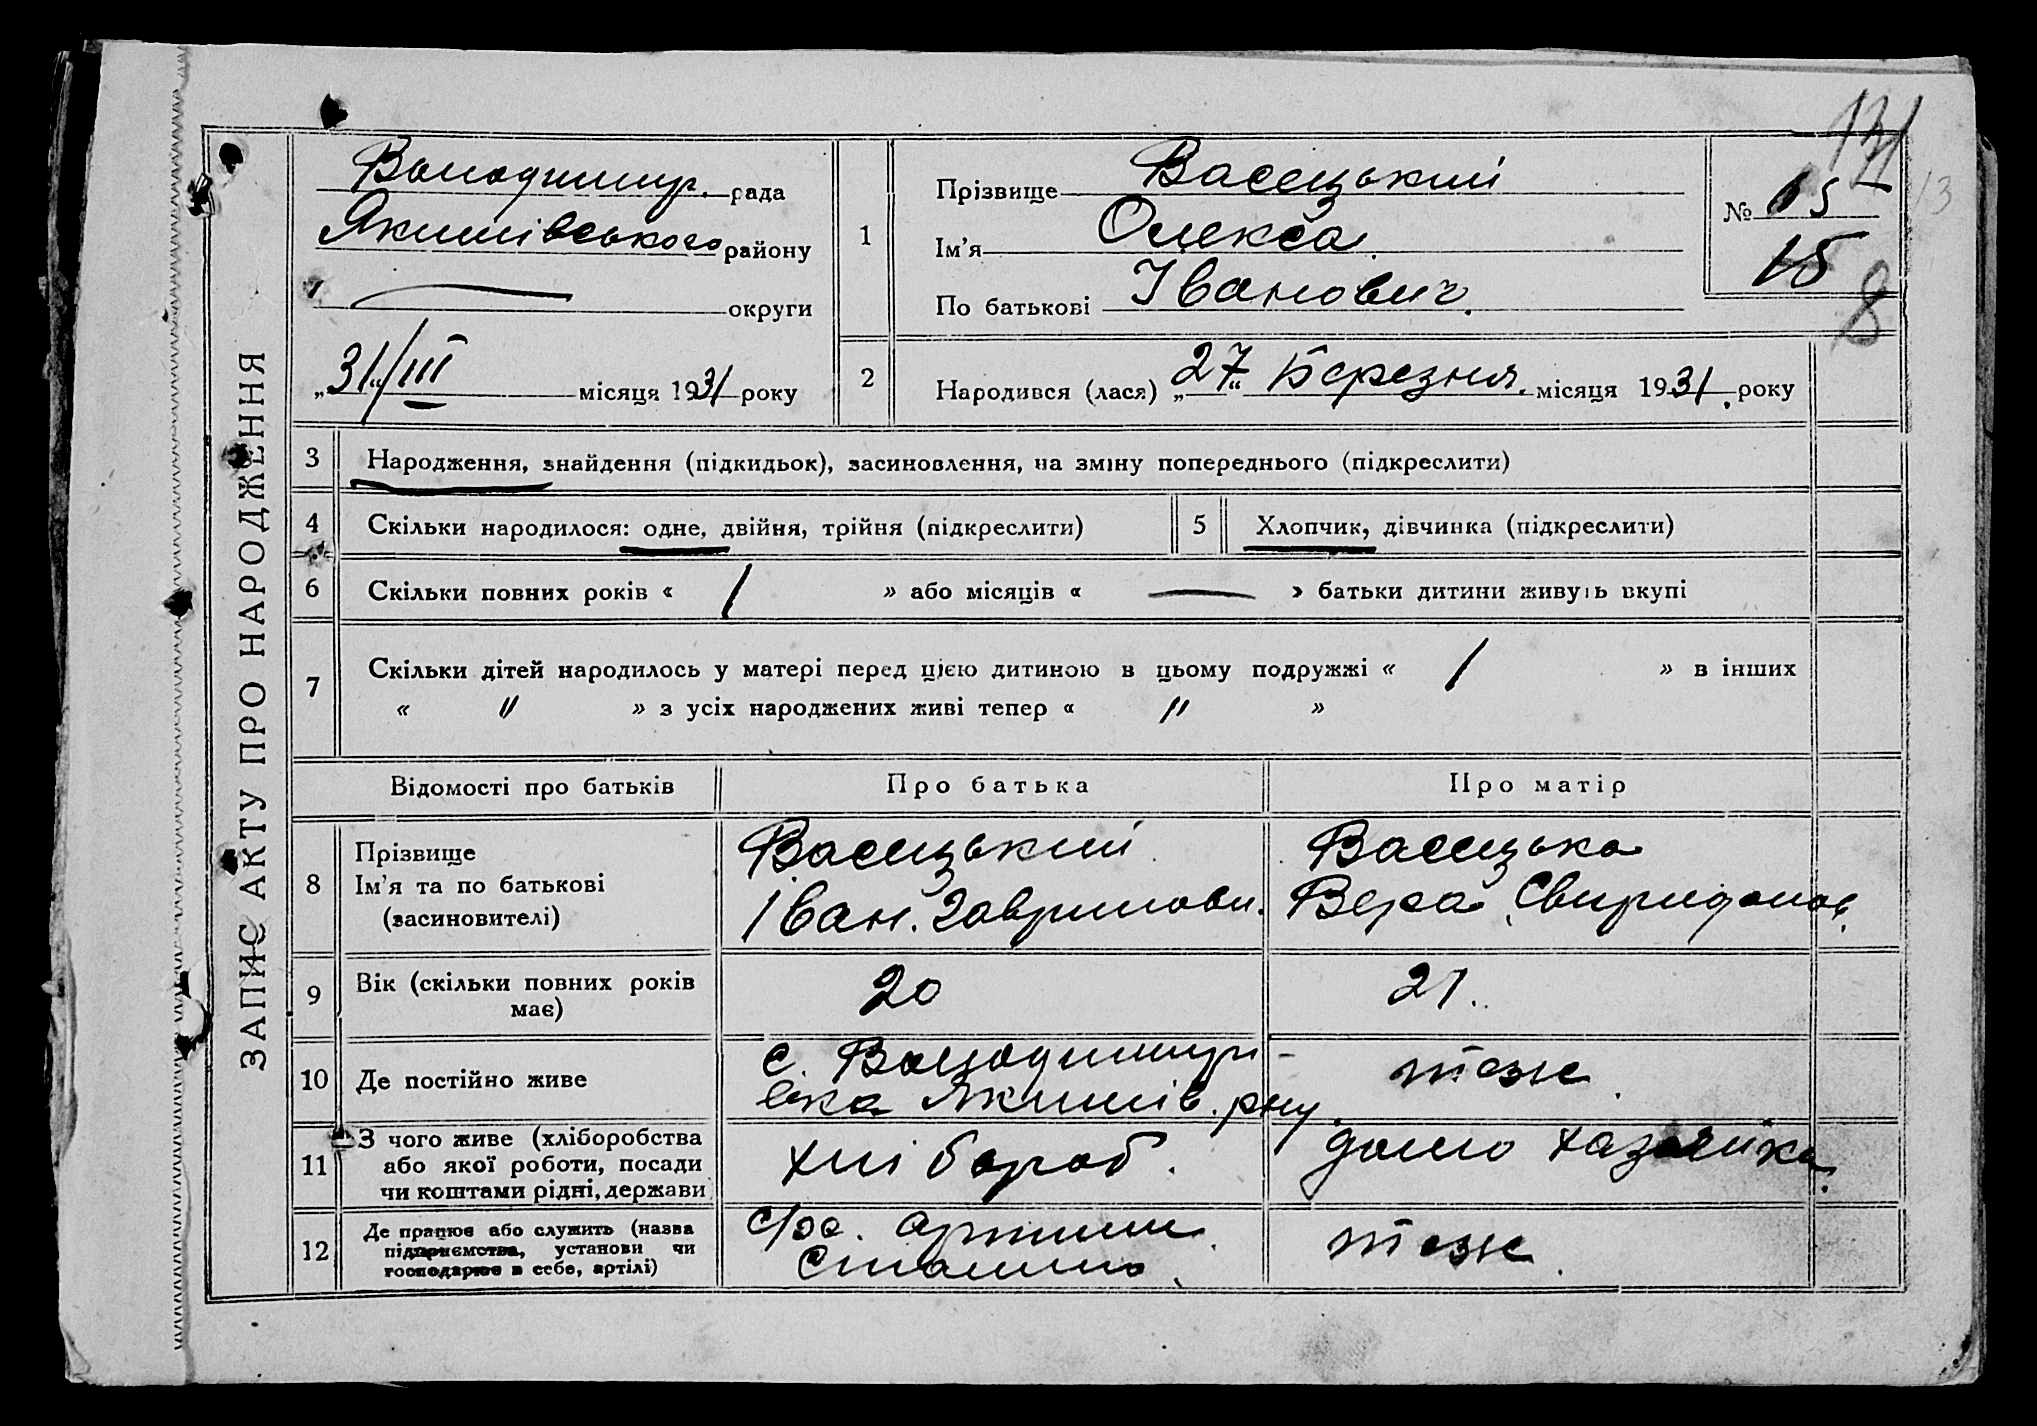 ЗАПИС АКТУ ПРО НАРОДЖЕННЯ
131
Володимир. рада
Якимівського району
округи
„31“/III місяця 1931 року
1
Прізвище Васецький
Ім’я Олекса
По батькові Іванович
№ 15
15
13
8
2
Народився (лася) „27“ Березня місяця 1931 року
3 Народження, знайдення (підкидьок), засиновлення, на зміну попереднього (підкреслити)
4 Скільки народилося: одне, двійня, трійня (підкреслити)
5 Хлопчик, дівчинка (підкреслити)
6 Скільки повних років « 1 » або місяців « — » батьки дитини живуть вкупі
7 Скільки дітей народилось у матері перед цією дитиною в цьому подружжі « 1 » в інших
« " » з усіх народжених живі тепер « " »
Відомості про батьків Про батька Про матір
8
Прізвище
Ім’я та по батькові
(засиновителі)
Васецький
Іван. Гаврилови.
Васецька
Вера Свиридонов.
9 Вік (скільки повних років
має)
20
21.
10 Де постійно живе
с. Володимирі-
вка Якимів. рну
теж
11
З чого живе (хліборобства
або якої роботи, посади
чи коштами рідні, держави
хлібороб.
домо хазяйка.
12
Де працює або служить (назва
підприємства, установи чи
господарює в себе, артілі)
артили
Сталина
теж.